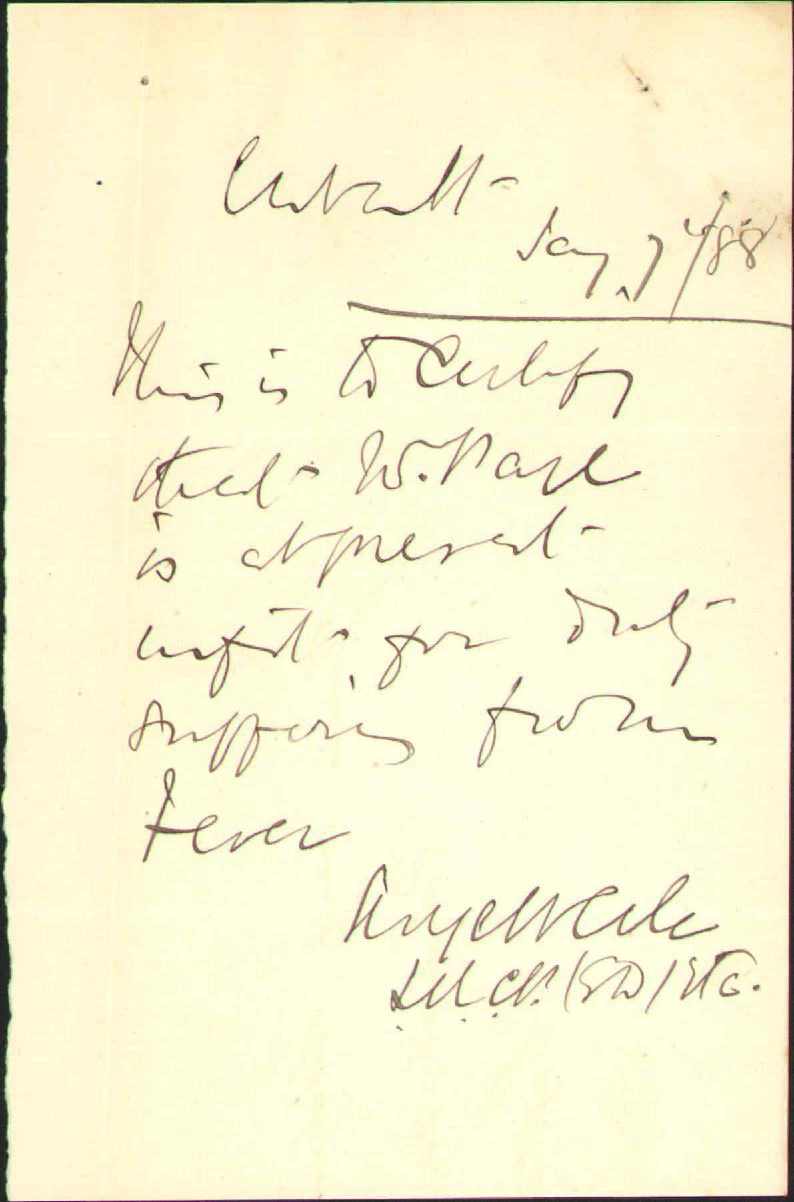 Jany 7th/88
This is to Certify
that W. Page
is at present
unfit for duty
suffering from
Fever